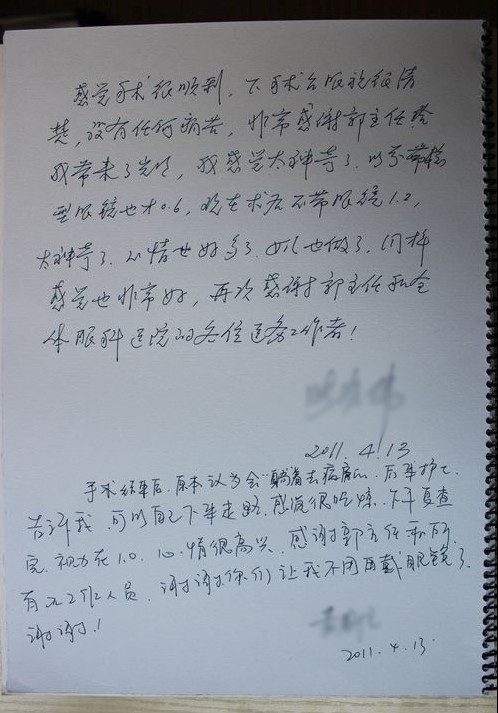 感觉手术很顺利，下手术台眼就很清
楚，没有任何痛苦，非常感谢郭主任给
我带来了光明，我感觉太神奇了，以前带轻
型眼镜也才0.6，现在术后不带眼镜1.2，
太神奇了，心情也好多了，女儿也做了，同样
感觉也非常好，再次感谢郭主任和全
体眼科医院的各位医务工作者！
2011.4.13
手术结束后，原本认为会“躺着去病房”，后来护士
告诉我，可以自己下来走路，感觉很吃惊，下午复查
完，视力在1.0，心情很高兴，感谢郭主任和所
有工作人员，谢谢你们让我不用再戴眼镜了，
谢谢！
2011.4.13